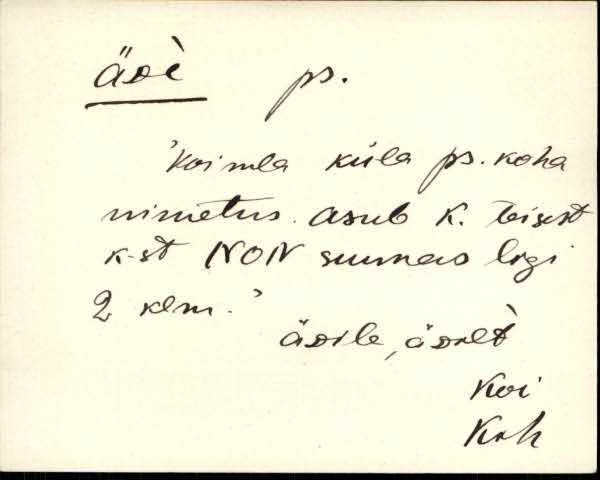 äsì ps.
'Koimla küla ps. koha
nimetus. asub K. teisest
k-st NON suunas ligi
2 klm.'
äsile, äsilt
Koi
Krk